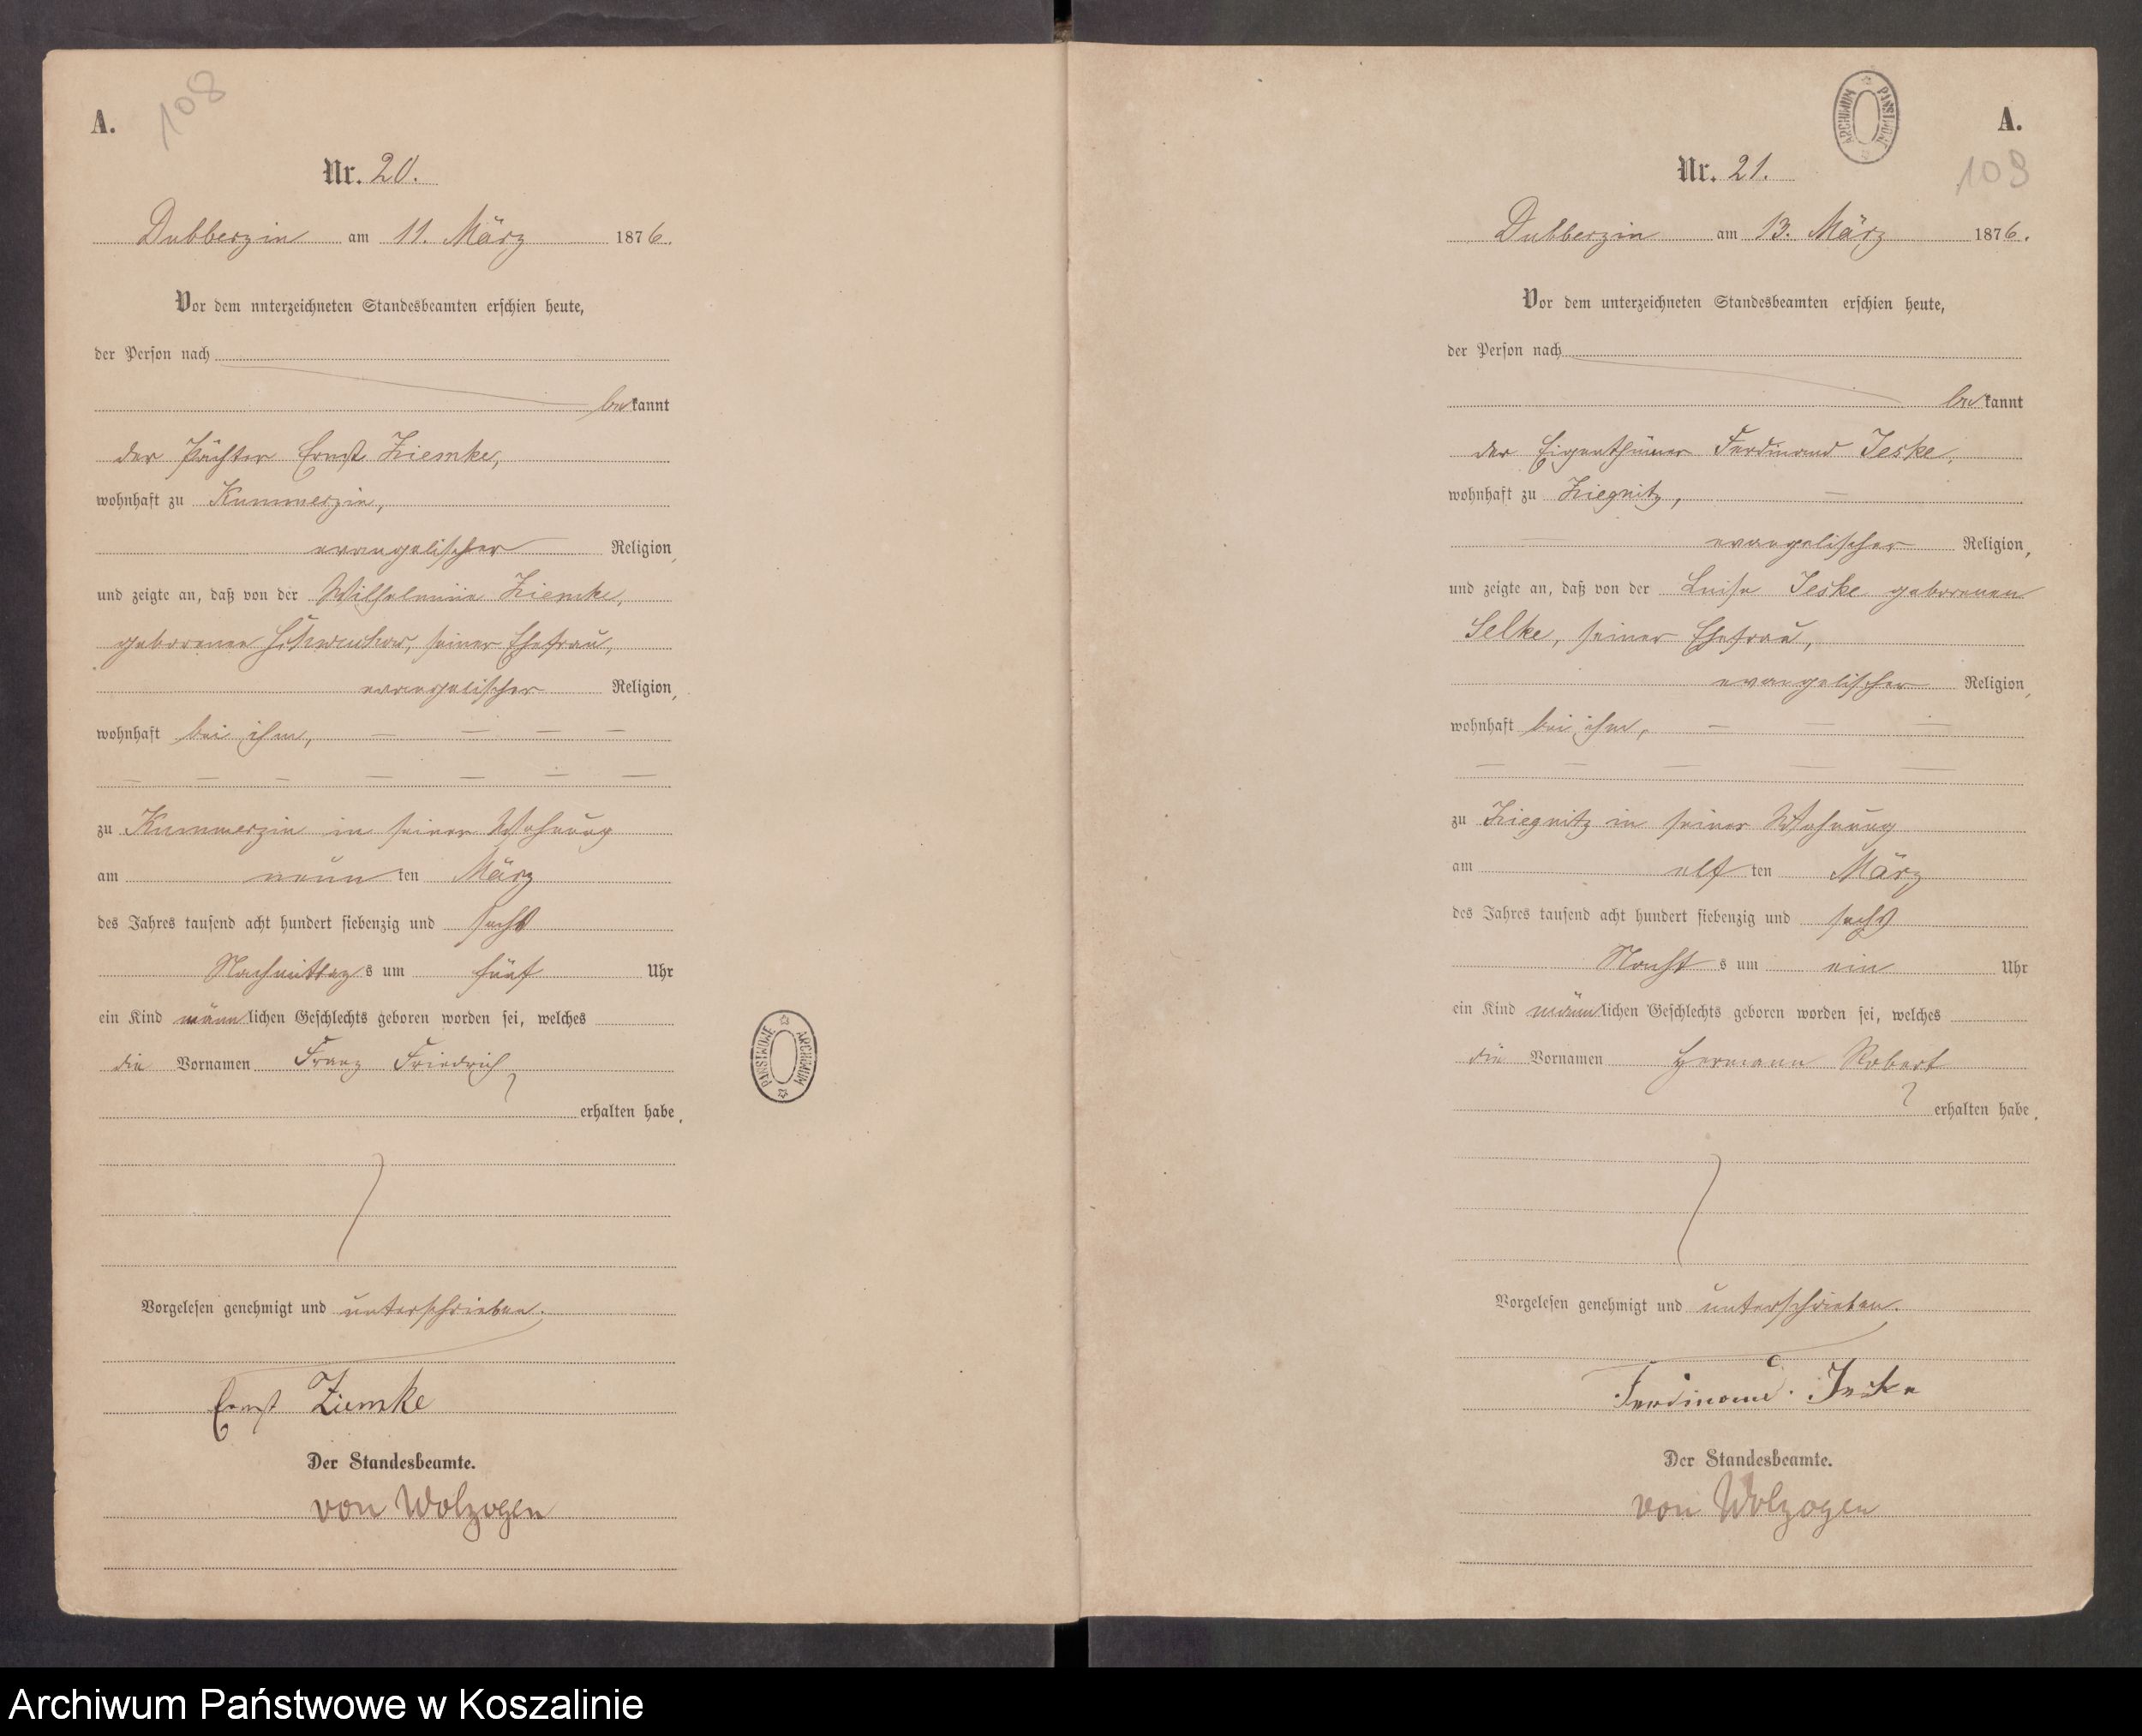 A.
108
Nr. 20.
Dubberzin am 11. März 1876.
Vor dem nnterzeichneten Standesbeamten erschien heute,
der Person nach
bekannt
der Pächter Ernst Ziemke,
wohnhaft zu Kummerzin,
evangelischer Religion,
und zeigte an, daß von der Wilhelmine Ziemke,
geborenen seiner Ehefrau,
evangelischer Religion,
wohnhaft bei ihm,
zu Kummerzin in seiner Wohnung
am neun ten März
des Jahres tausend acht hundert siebenzig und sechs
Nachmittag s um fünf Uhr
ein Kind männlichen Geschlechts geboren worden sei, welches
die Vornamen Franz Friedrich
erhalten habe.
Vorgelesen genehmigt und unterschrieben.
Ernst Ziemke
Der Standesbeamte.
von Wolzogen
PAŃSTWOWE ARCHIWUM
ARCHIWUM PAŃSTWOWE
A.
109
Nr. 21.
Dubberzin am 13. März 1876.
Vor dem unterzeichneten Standesbeamten erschien heute,
der Person nach
bekannt
der Eigenthümer Ferdinand Jeske,
wohnhaft zu Ziegnitz,
evangelischer Religion,
und zeigte an, daß von der Luise Jeske geborenen
Selke, seiner Ehefrau,
evangelischer Religion,
wohnhaft bei ihm,
zu Ziegnitz in seiner Wohnung
am elf ten März
des Jahres tausend acht hundert siebenzig und sechs
Nacht s um ein Uhr
ein Kind männlichen Geschlechts geboren worden sei, welches
die Vornamen Hermann Robert
erhalten habe.
Vorgelesen genehmigt und unterschrieben.
Ferdinand Jeske
Der Standesbeamte.
von Wolzogen
Archiwum Państwowe w Koszalinie